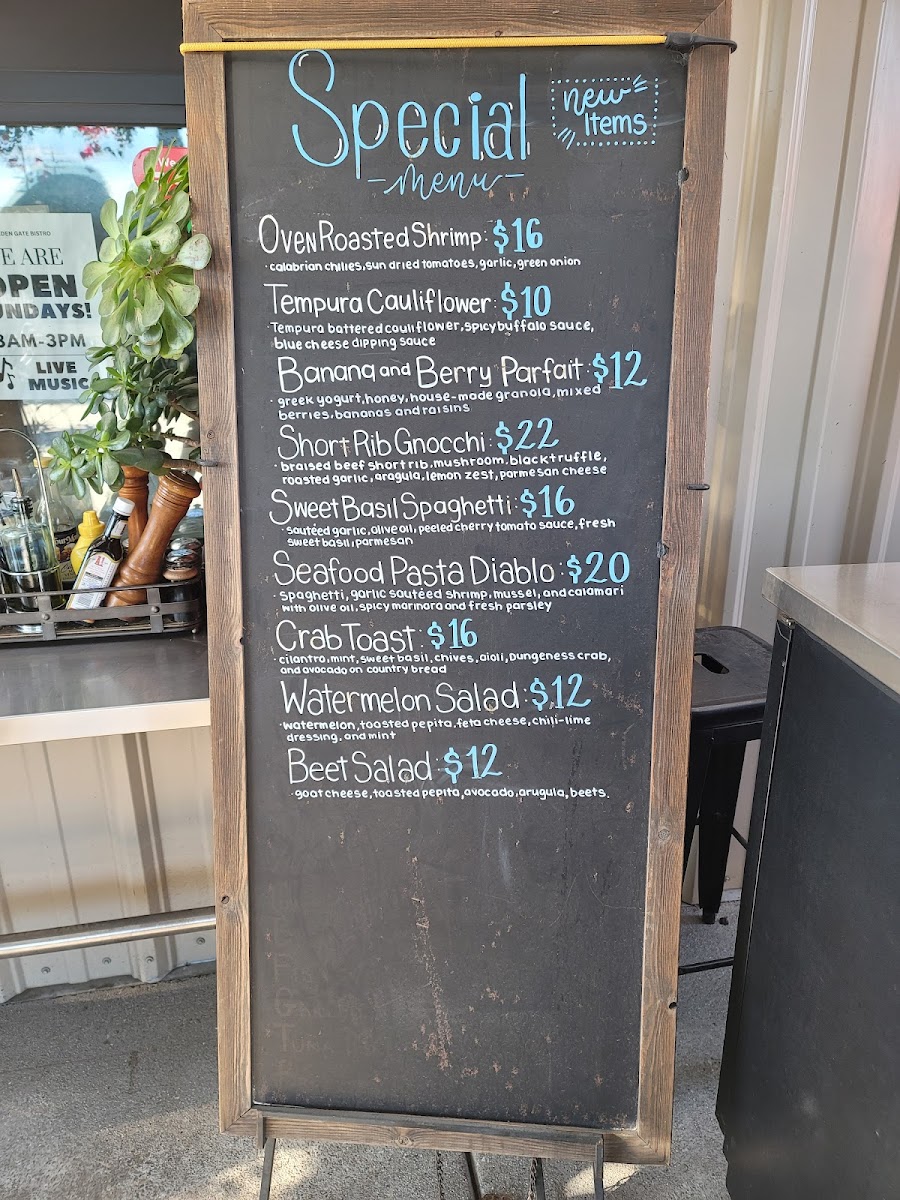 Special
menu
new
Items
Oven Roasted Shrimp: $16
· calabrian chilies, sun dried tomatoes, garlic, green onion
Tempura Cauliflower: $10
· Tempura battered cauliflower, spicy buffalo sauce,
blue cheese dipping sauce
Banana and Berry Parfait: $12
· greek yogurt, honey, house-made granola, mixed
berries, bananas and raisins
Short Rib Gnocchi: $22
· braised beef short rib, mushroom, black truffle,
roasted garlic, aragula, lemon zest, parmesan cheese
Sweet Basil Spaghetti: $16
· sautéed garlic, olive oil, peeled cherry tomato sauce, fresh
sweet basil, parmesan
Seafood Pasta Diablo: $20
· spaghetti, garlic sautéed shrimp, mussel, and calamari
with olive oil, spicy marinara and fresh parsley
Crab Toast: $16
· cilantro, mint, sweet basil, chives, aioli, Dungeness crab,
and avocado on country bread
Watermelon Salad: $12
· watermelon, toasted pepita, feta cheese, chili-lime
dressing, and mint
Beet Salad: $12
· goat cheese, toasted pepita, avocado, arugula, beets.
DEN GATE BISTRO
E ARE
OPEN
UNDAYS!
8AM-3PM
LIVE
MUSIC